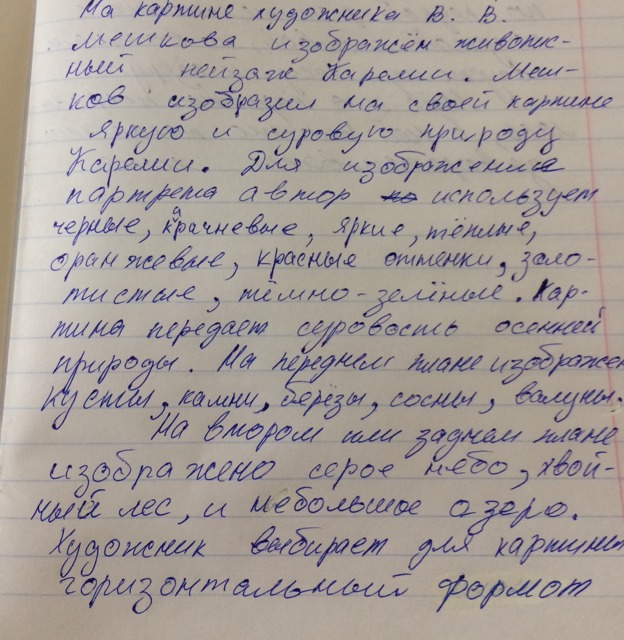 На картине художника В. В.
Мешкова изображён живопис-
ный пейзаж Карелии. Меш-
ков изобразил на своей картине
яркую и суровую природу
Карелии. Для изображение
партрета автор но использует
черные, карачневые, яркие, тёплые,
оранжевые, красные оттенки, золо-
тистые, тёмно-зелёные. Кар-
тина передаёт суровость осенней
природы. На переднем плане изображен
кусты, камни, берёзы, сосны, валуны.
На втором или заднем плане
изображено серое небо, хвой-
ный лес, и небольшое озеро.
Художник выбирает для картины
горизонтальный формот